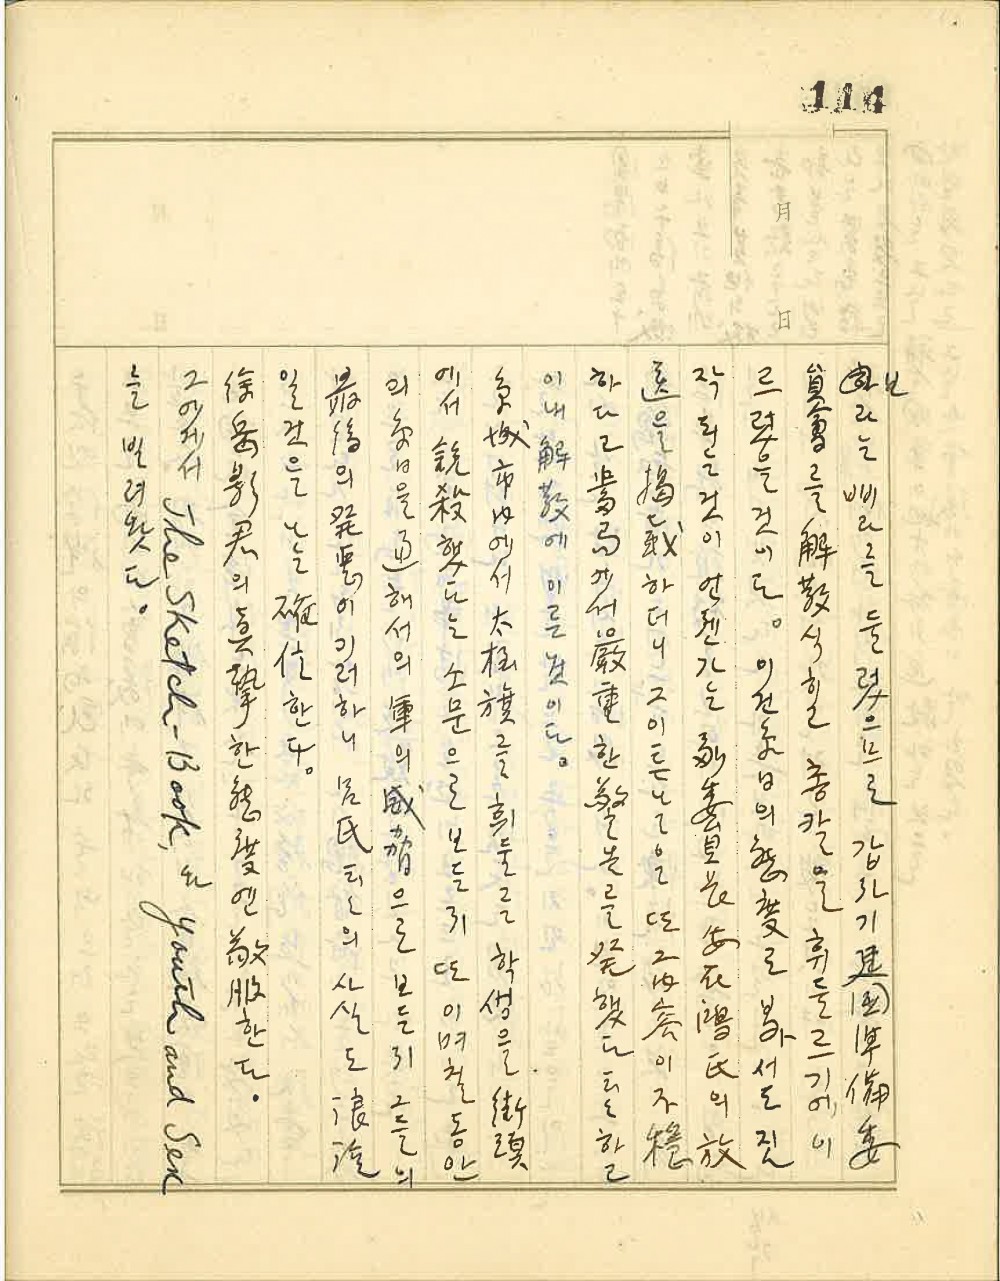 114
月
日
보라는 삐라를 돌렸으므로 갑자기 建國準備委
員會를 解散식힐 총칼을 휘둘르기에 이
르렀든것이다。이건 今日의 態度로 봐서도 짐
작되는것이 언젠가는 副委員長 安在鴻氏의 放
送을 揭載하더니 그이튼날은 또 그內容이 不穩
하다고 當局에서 嚴重한 警告를 発했다 되고 하고
이내 解散에 이른것이다。
京城市內에서 太極旗를 휘둘른 학생을 街頭
에서 銃殺했다는 소문으로 보든지 또 이며칠동안
의 今日을 通해서의 軍의 威脅으로 보든지 그들의
最後의 発惡이 이러하니 呂氏 되는의 사실도 浪說
일것을 나는 確信한다。
徐岳影君의 眞摯한 態度엔 敬服한다。
그에게서 The Sketch-Book, 와 Youth and Sex
를 빌려왔다。